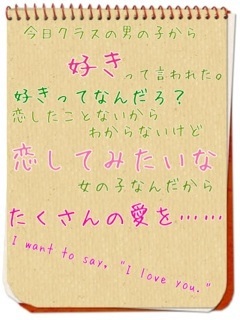 今日クラスの男の子から
好きって言われた。
好きってなんだろ？
恋したことないから
わからないけど
恋してみたいな
女の子なんだから
たくさんの愛を……
I want to say, "I love you."